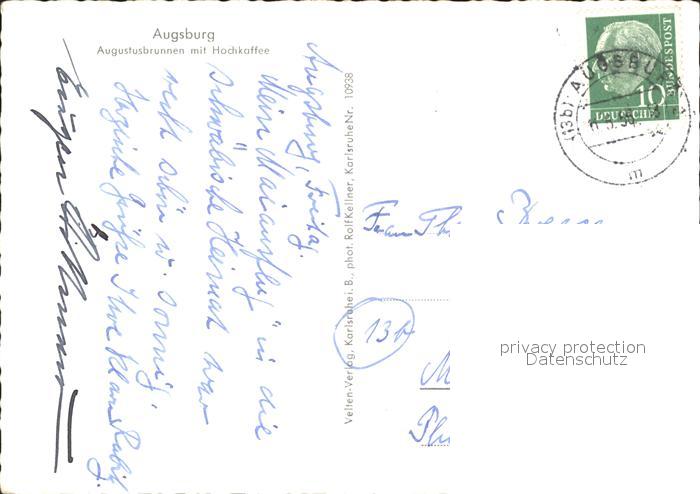 Augsburg
Augustusbrunnen mit Hochkaffee
Augsburg, Freitag.
Mein Maiausflug in die
schwäbische Heimat war
recht schön u. sonnig.
Herzliche Grüße Ihre Klara
Velten-Verlag, Karlsruhe i. B., phot. Rolf Kellner, Karlsruhe Nr. 10938
DEUTSCHE BUNDESPOST
10
(13b) AUGSBURG
m
Frau
13b
privacy protection
Datenschutz